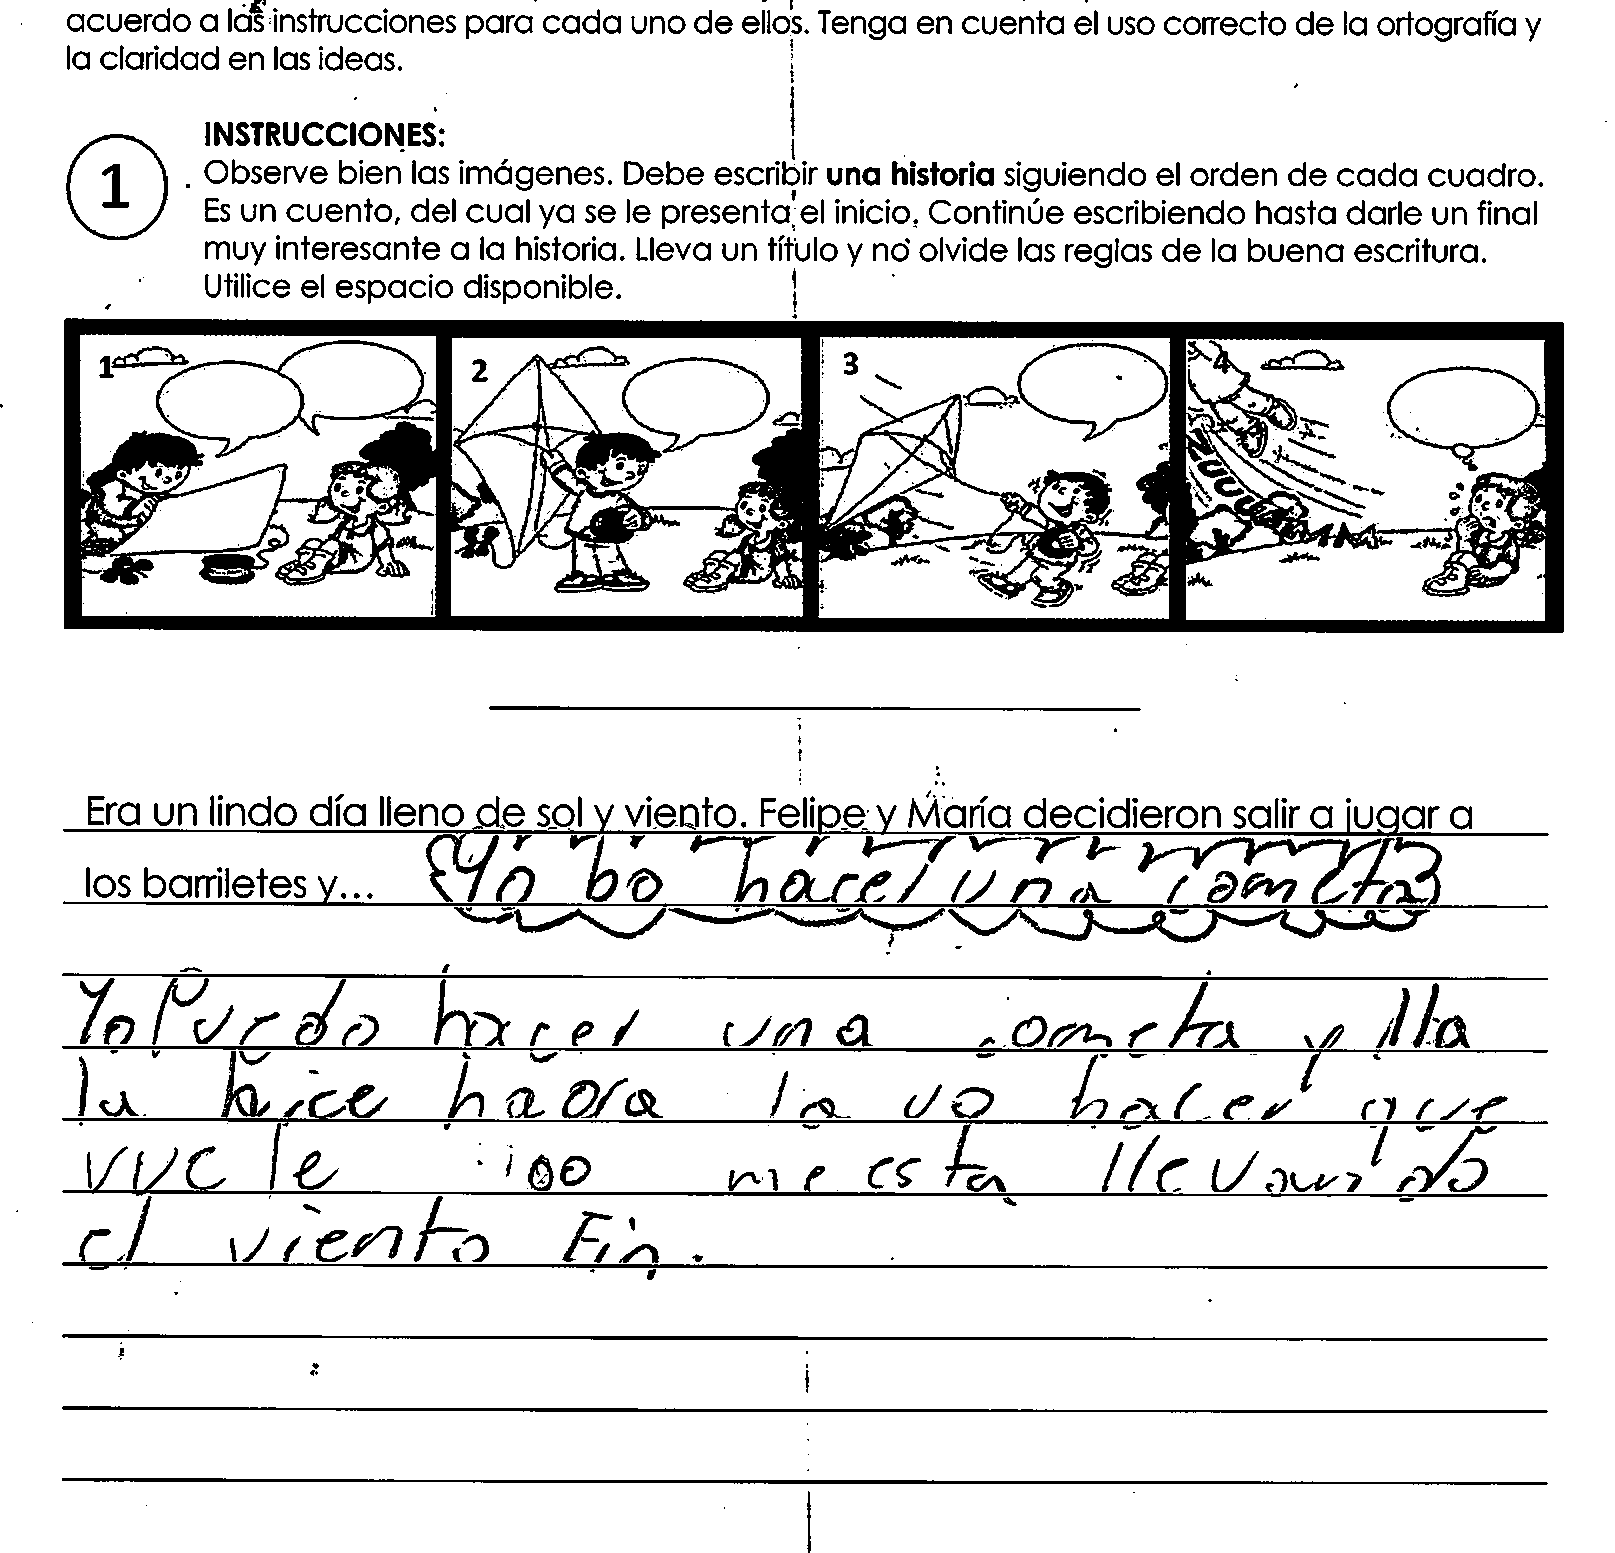 acuerdo a las instrucciones para cada uno de ellos. Tenga en cuenta el uso correcto de la ortografía y
la claridad en las ideas.
1
INSTRUCCIONES:
Observe bien las imágenes. Debe escribir una historia siguiendo el orden de cada cuadro.
Es un cuento, del cual ya se le presenta el inicio. Continúe escribiendo hasta darle un final
muy interesante a la historia. Lleva un título y no olvide las reglas de la buena escritura.
Utilice el espacio disponible.
1 2 3 4
ZUUUUMMM
Era un lindo día lleno de sol y viento. Felipe y María decidieron salir a jugar a
los barriletes y... Yo bo hacer una cometa
Yo Puedo hacer una cometa y lla
la hice haora la vo hacer que
vuele ioo me esta llevando
el viento Fin.